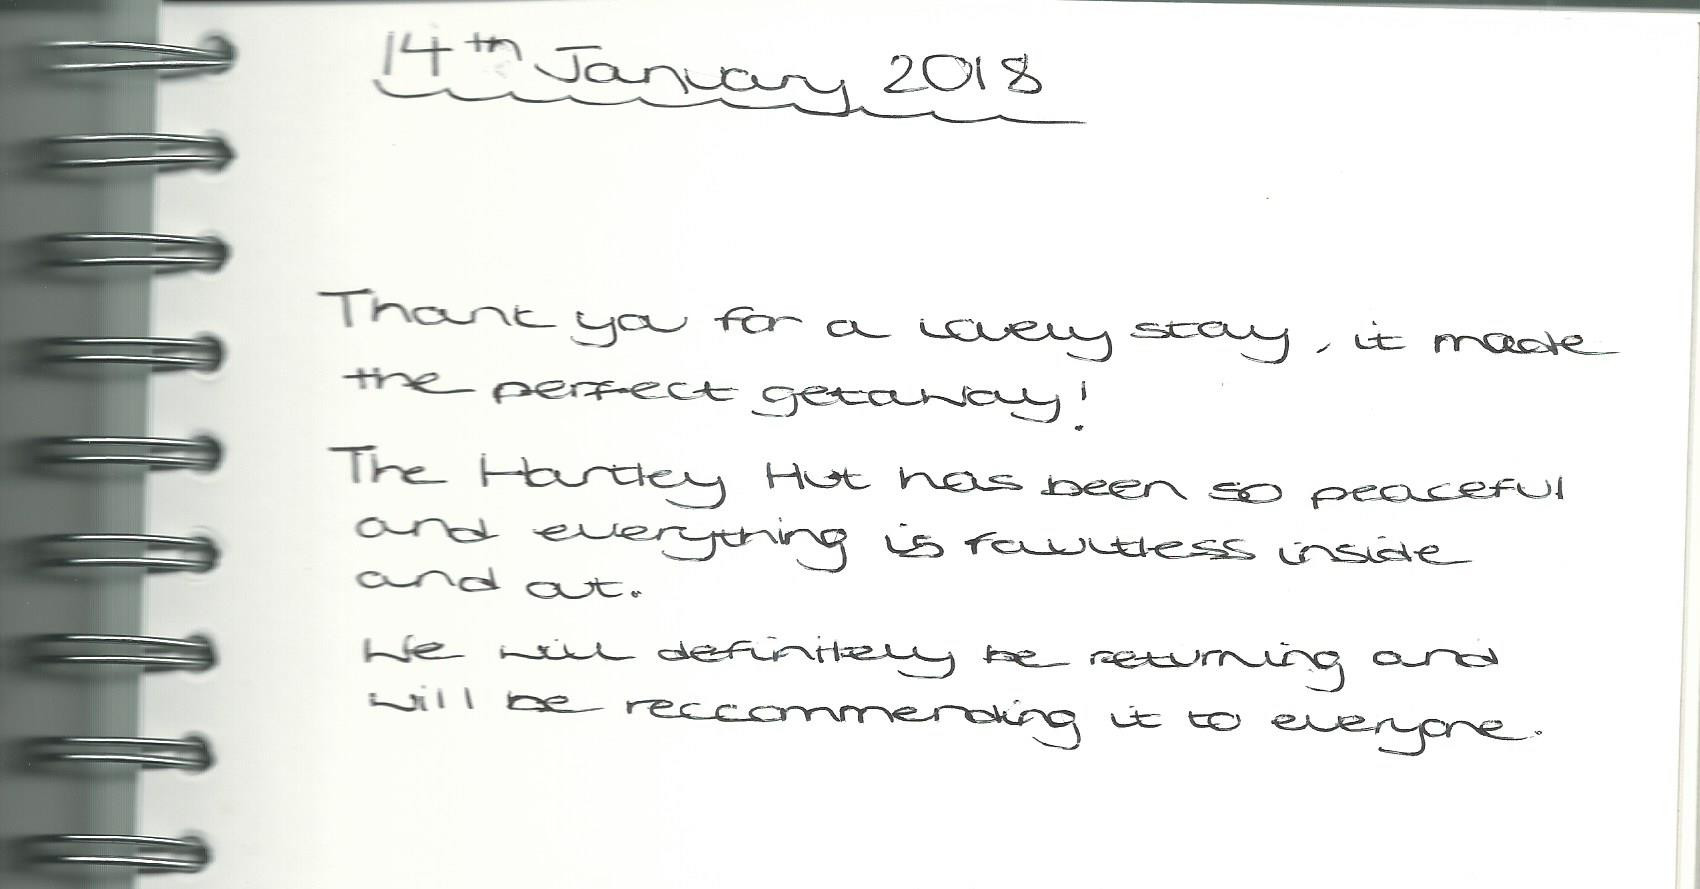 14th January 2018
Thank you for a lovely stay, it made
the perfect getaway!
The Hartley Hut has been so peaceful
and everything is faultless inside
and out.
We will definitely be returning and
will be reccommending it to everyone.